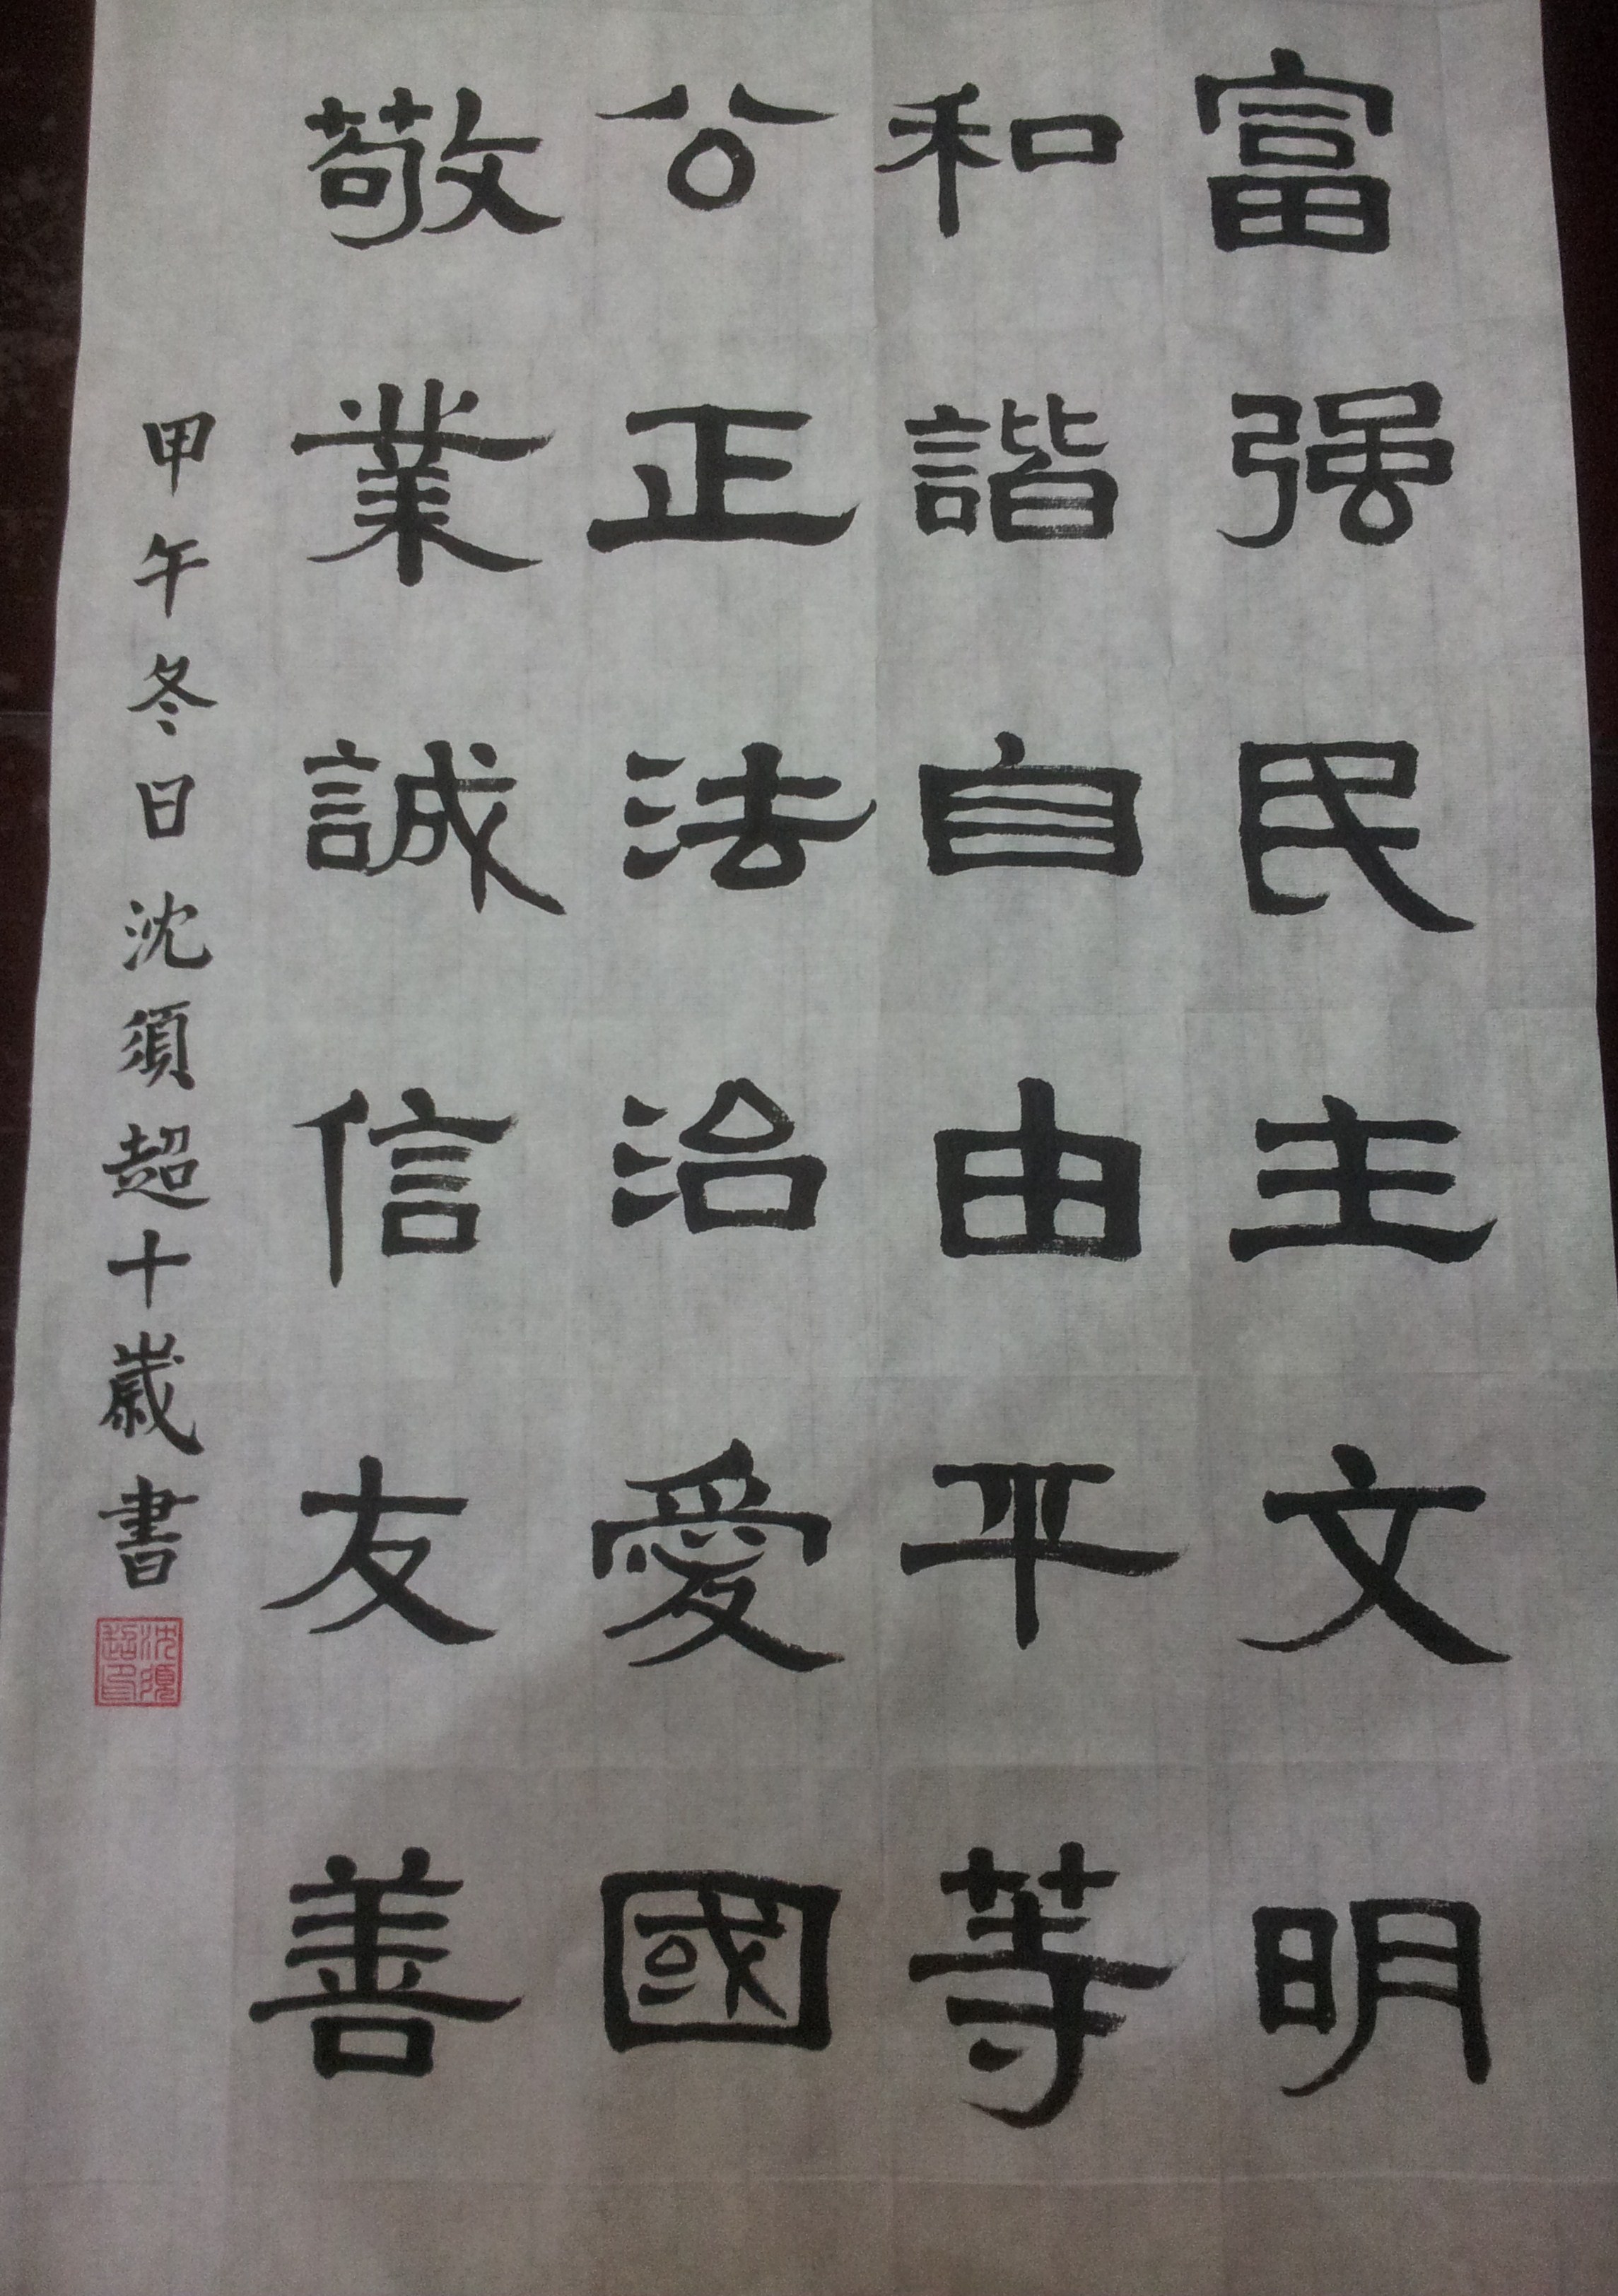 富强民主文明
和諧自由平等
公正法治愛國
敬業誠信友善
甲午冬日沈須超十歲書
沈須超印